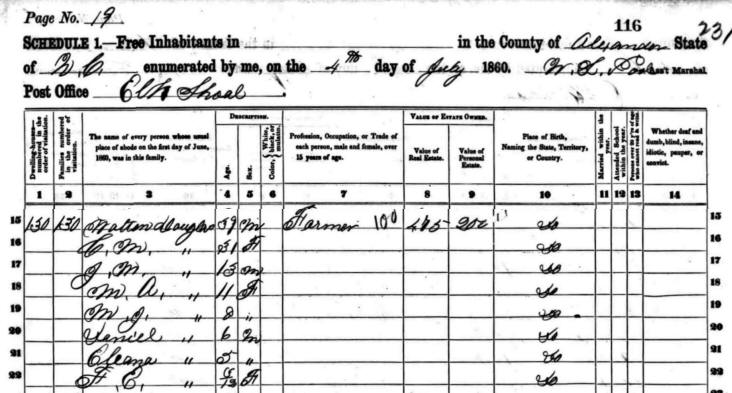 Page No. 19
116
231
SCHEDULE 1.—Free Inhabitants in in the County of Alexander State
of N. C. enumerated by me, on the 4th day of July 1860. W. L. Ass't Marshal
Post Office Elk Shoal
Dwelling-houses numbered in the order of visitation.
Families numbered in the order of visitation.
The name of every person whose usual place of abode on the first day of June, 1860, was in this family.
DESCRIPTION.
Age.
Sex.
Color, { White, black, or mulatto.
Profession, Occupation, or Trade of each person, male and female, over 15 years of age.
VALUE OF ESTATE OWNED.
Value of Real Estate.
Value of Personal Estate.
Place of Birth, Naming the State, Territory, or Country.
Married within the year.
Attended School within the year.
Persons over 20 y'rs of age who cannot read & write.
Whether deaf and dumb, blind, insane, idiotic, pauper, or convict.
1 2 3 4 5 6 7 8 9 10 11 12 13 14
15 130 130 Watton Douglas 59 M Farmer 100 495 200 Do 15
16 C. M. " 31 F Do 16
17 J. M. " 13 M Do 17
18 M. A. " 11 F Do 18
19 M. J. " 8 " Do 19
20 Daniel " 6 M Do 20
21 Cleana " 5 " Do 21
22 F. E. " /12 F Do 22